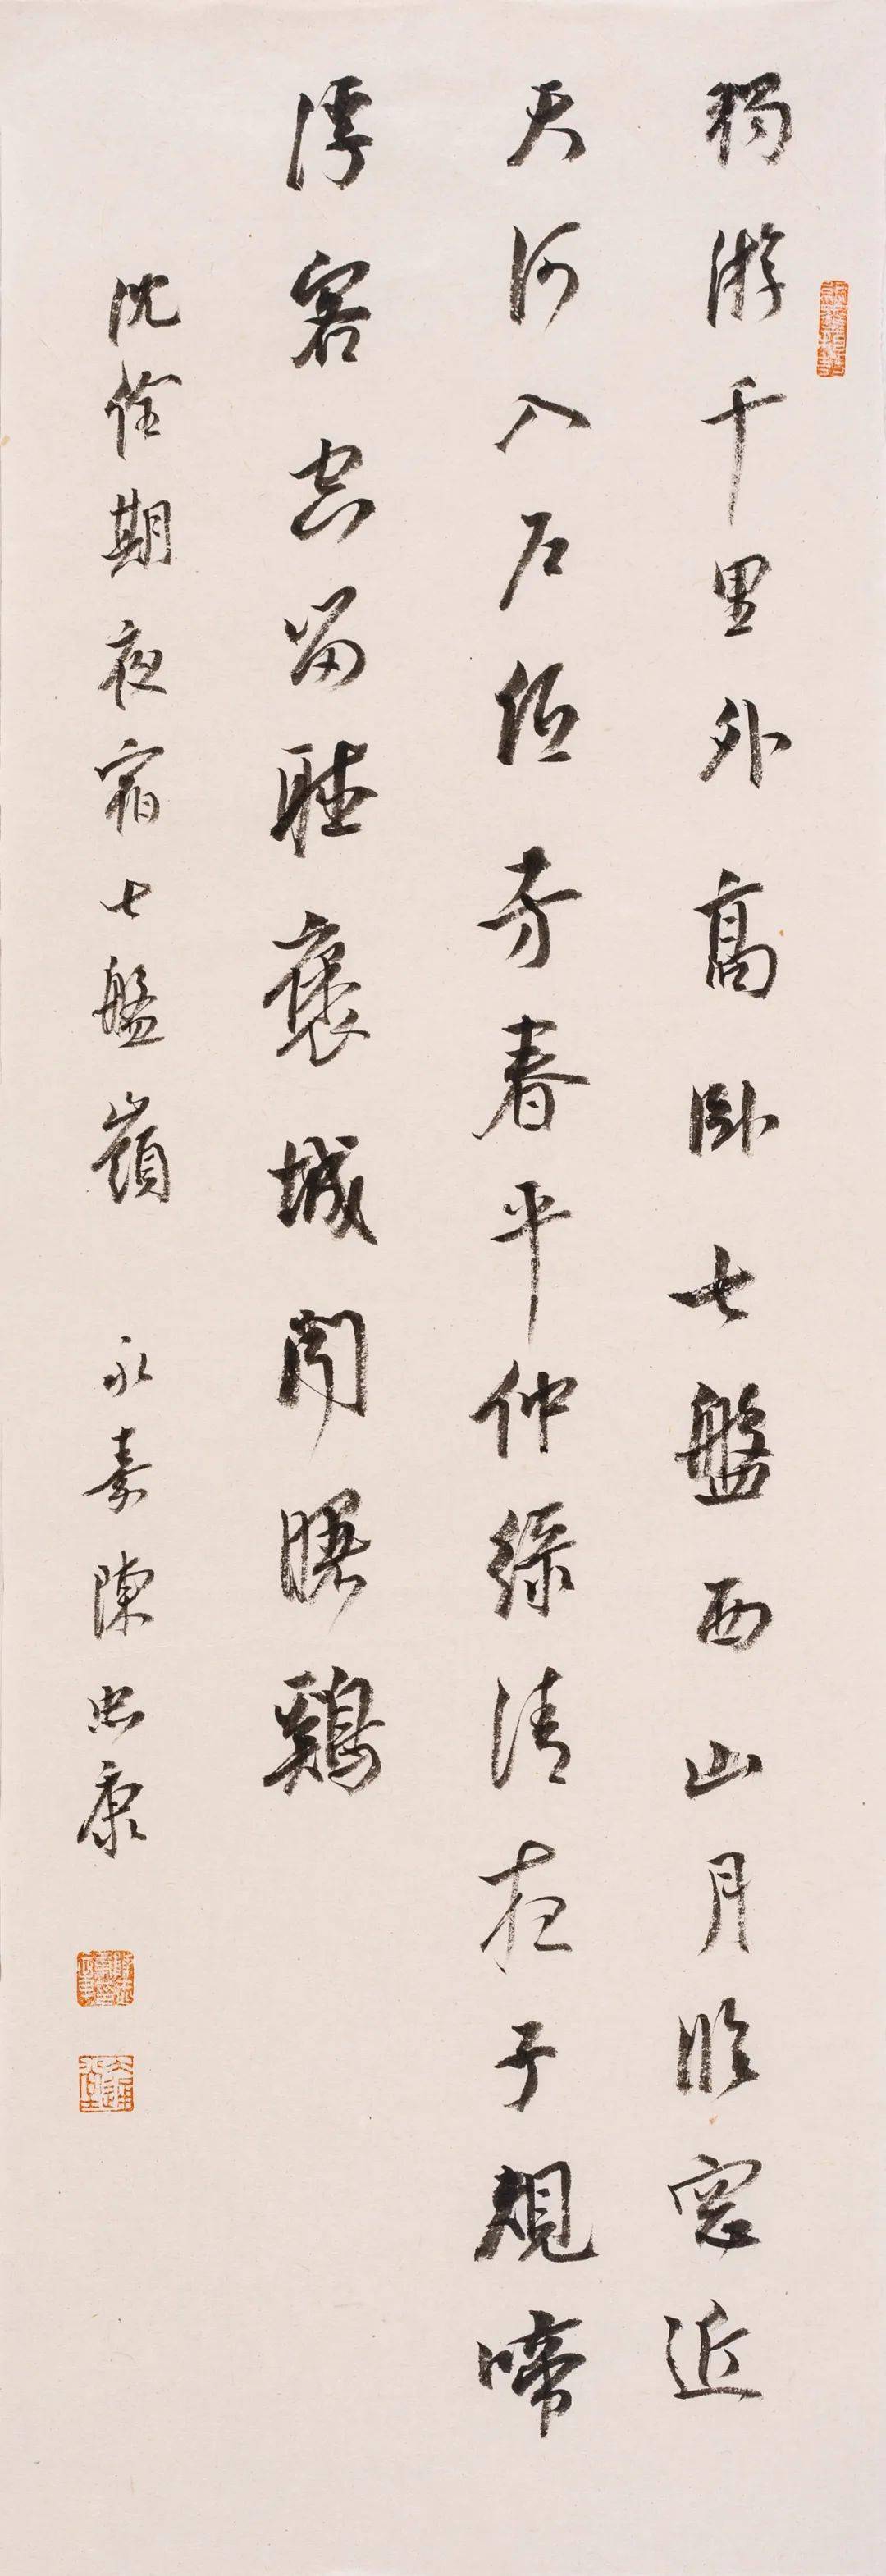 獨游千里外高卧七盤西山月臨窗近
天河入戶低芳春平仲綠清夜子規啼
浮客空留聽褒城聞曙鷄
沈佺期夜宿七盤嶺 永泰陳忠康